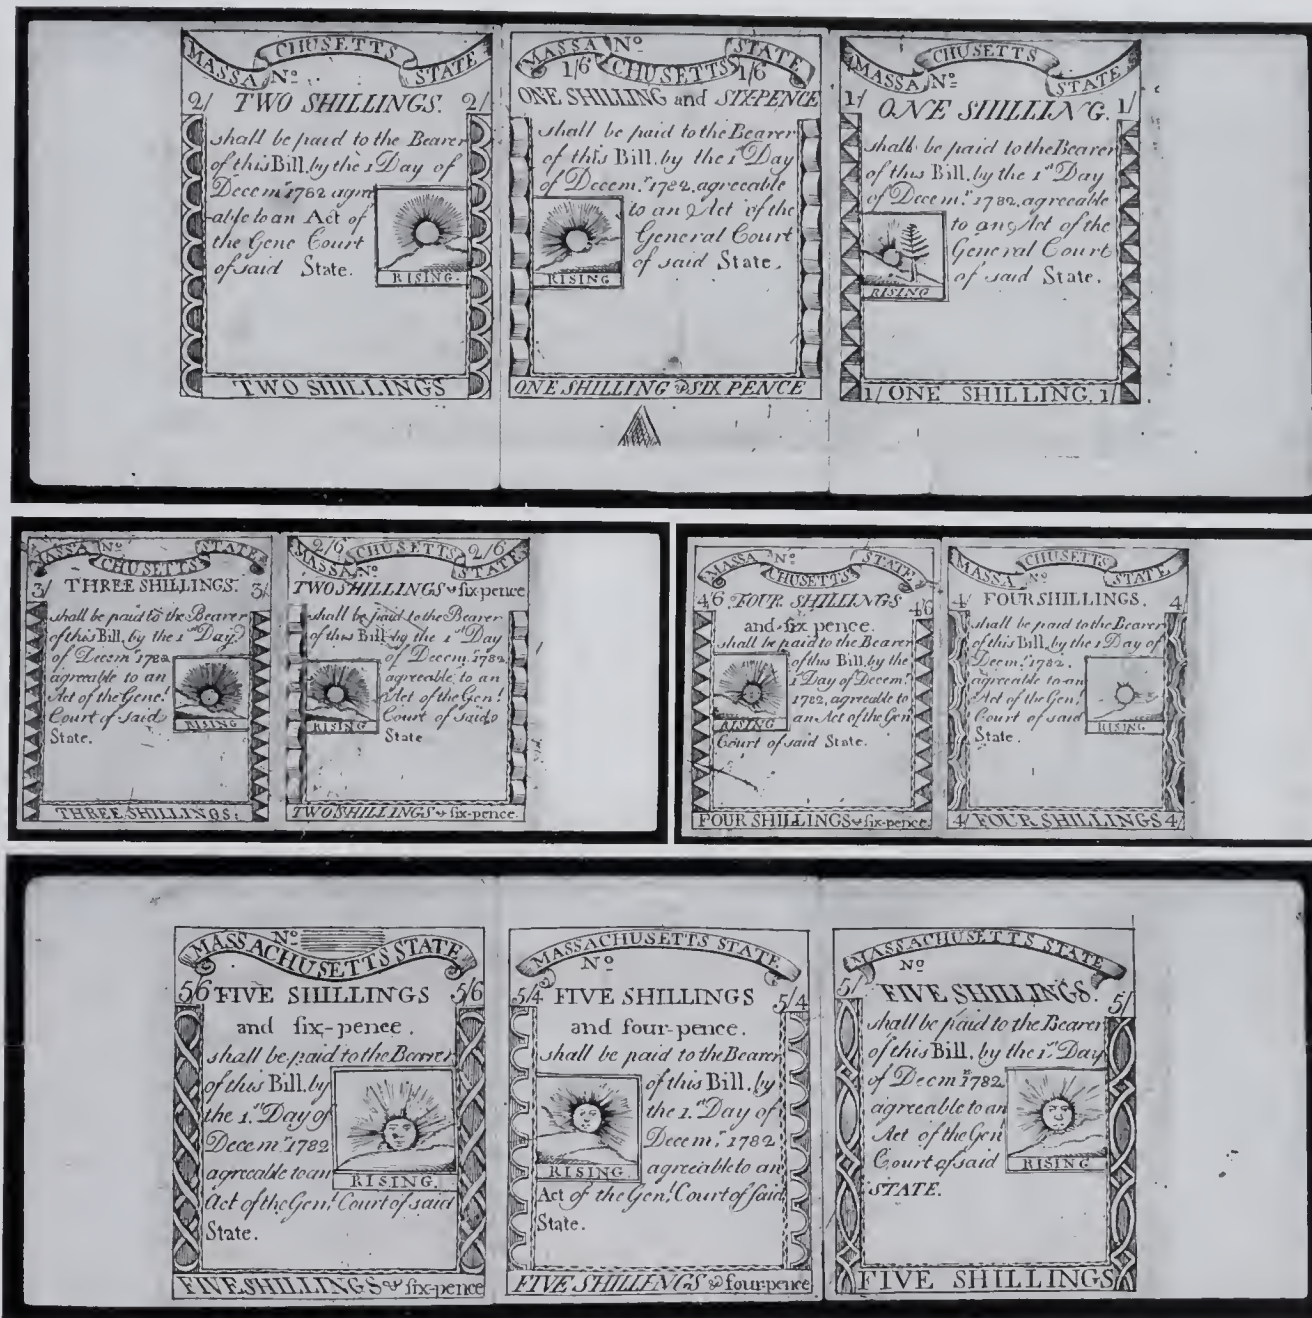 MASSACHUSETTS STATE
Nº
2/ TWO SHILLINGS. 2/
shall be paid to the Bearer
of this Bill, by the 1 Day of
Decemr 1782 agre
-able to an Act of
the Gene Court
of said State.
RISING.
TWO SHILLINGS
MASSACHUSETTS STATE
Nº
1/6 1/6
ONE SHILLING and SIXPENCE
shall be paid to the Bearer
of this Bill, by the 1st Day
of Decem.r 1782, agreeable
to an Act of the
General Court
of said State.
RISING
ONE SHILLING & SIX PENCE
MASSACHUSETTS STATE
Nº
1/ ONE SHILLING. 1/
shall be paid to the Bearer
of this Bill, by the 1st Day
of Decem.r 1782, agreeable
to an Act of the
General Court
of said State.
RISING
1/ ONE SHILLING. 1/
MASSACHUSETTS STATE
Nº
3/ THREE SHILLINGS. 3/
shall be paid to the Bearer
of this Bill, by the 1st Day
of Decemr 1782
agreeable to an
Act of the Gene.l
Court of said
State.
RISING
THREE SHILLINGS.
2/6 2/6
MASSACHUSETTS STATE
Nº
TWO SHILLINGS & six-pence
shall be paid to the Bearer
of this Bill by the 1st Day
of Decem, 1782,
agreeable to an
Act of the Gen.l
Court of said
State
RISING
TWO SHILLINGS & six-pence.
MASSACHUSETTS STATE
Nº
4/6 FOUR SHILLINGS 4/6
and six pence.
shall be paid to the Bearer
of this Bill, by the
1st Day of Decem.r
1782, agreeable to
an Act of the Gen
Court of said State.
RISING
FOUR SHILLINGS & six-pence.
MASSACHUSETTS STATE
Nº
4/ FOUR SHILLINGS. 4/
shall be paid to the Bearer
of this Bill, by the 1 Day of
Decem.r 1782,
agreeable to an
Act of the Gen.l
Court of said
State.
RISING.
4/ FOUR SHILLINGS 4/
Nº
MASSACHUSETTS STATE
5/6 FIVE SHILLINGS 5/6
and six-pence.
shall be paid to the Bearer
of this Bill, by
the 1.st Day of
Decemr 1782
agreeable to an
Act of the Gen.l Court of said
State.
RISING.
FIVE SHILLINGS & six-pence
MASSACHUSETTS STATE
Nº
5/4 FIVE SHILLINGS 5/4
and four-pence.
shall be paid to the Bearer
of this Bill, by
the 1.st Day of
Decem.r 1782
agreeable to an
Act of the Gen.l Court of said
State.
RISING.
FIVE SHILLINGS & four-pence
MASSACHUSETTS STATE
Nº
5/ FIVE SHILLINGS. 5/
shall be paid to the Bearer
of this Bill, by the 1st Day
of Decmr 1782
agreeable to an
Act of the Gen
Court of said
STATE.
RISING
FIVE SHILLINGS